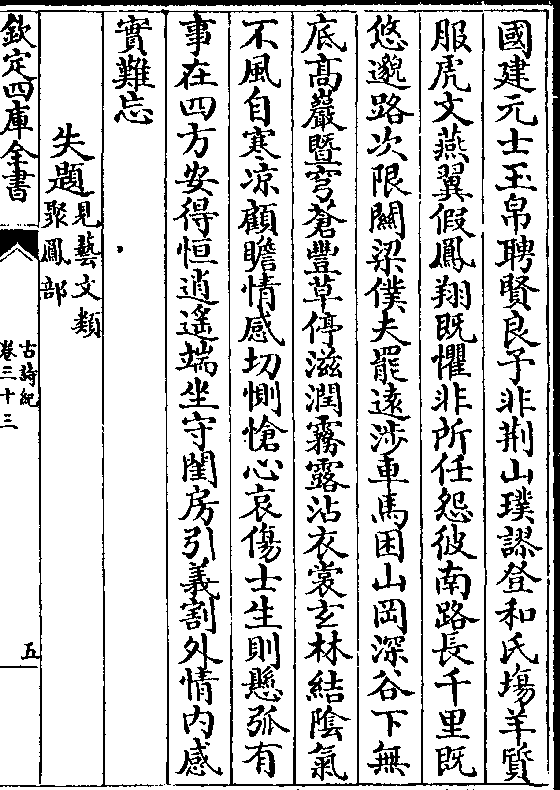 國建元士玉帛聘賢良子非荆山璞謬登和氏塲羊質
服虎文燕翼假鳳翔既懼非所任怨彼南路長千里既
悠邈路次限關梁僕夫罷遠涉車馬困山岡深谷下無
底髙巖暨穹蒼豐草停滋潤霧露沾衣裳玄林結隂氣
不風自寒凉顧瞻情感切惻愴心哀傷士生則懸弧有
事在四方安得恒逍遥端坐守閨房引義割外情内感
實難忘
失題見藝文類
聚鳳部
欽定四庫全書
古詩紀
卷三十三
五